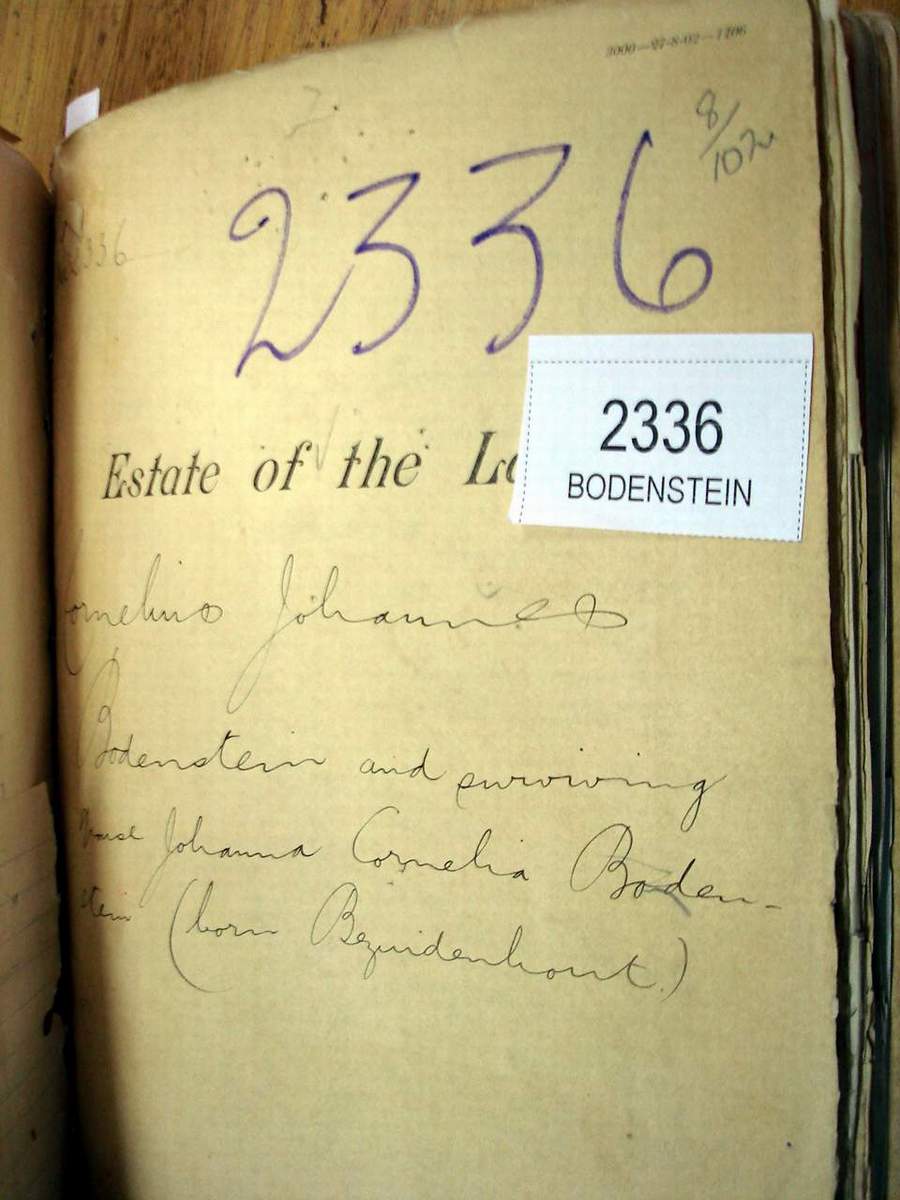 2000—27-8-02—1706
8/102
2336
2336
2336
BODENSTEIN
Estate of the La
Cornelius Johannes
Bodenstein and surviving
spouse Johanna Cornelia Boden-
stein (born Bezuidenhout.)